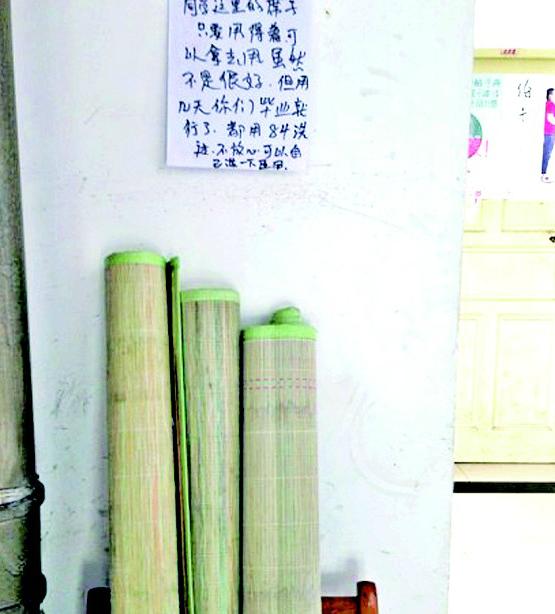 同学这里的席子
只要用得着可
以拿去用 虽然
不是很好. 但用
几天你们毕业就
行了. 都用84洗
过. 不放心可以自
己洗一下再用.